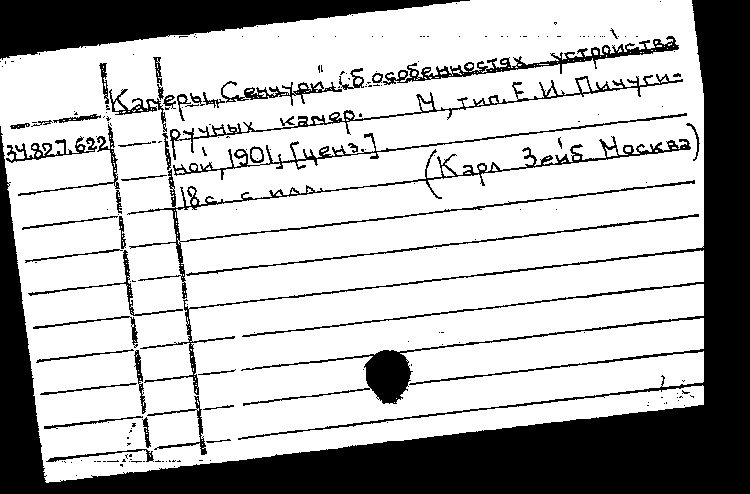 Камеры „Сенчури". (Б особенностях устройства
ручных камер. М., тип. Е. И. Пичуги-
34.82.7.622
ной, 1901, [ценз.].
18 с. с илл. (Карл Зейб Москва)